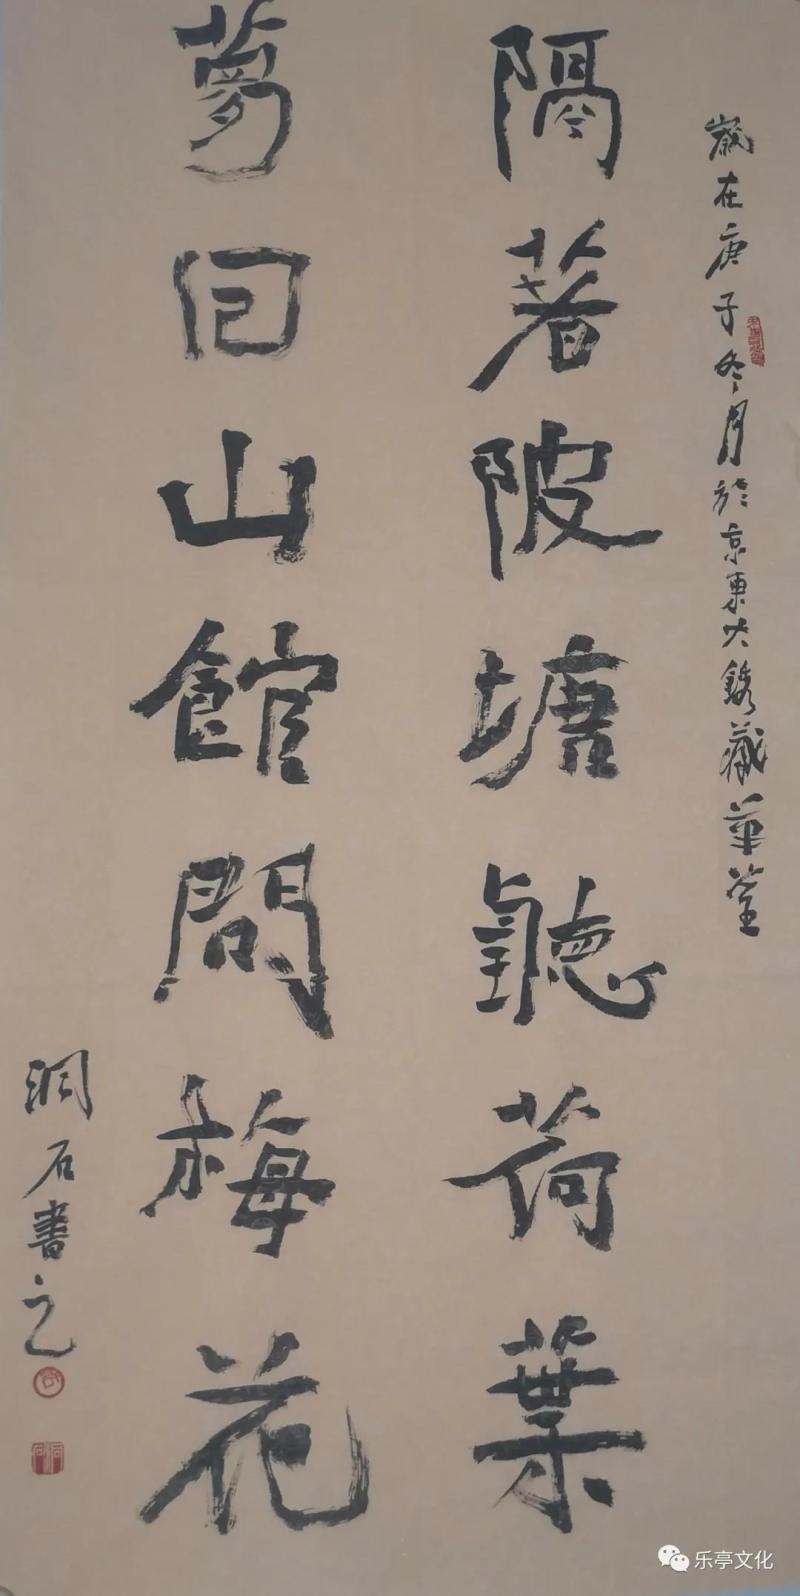 歲在庚子冬月於京東大鎸藏華堂
隔著陂塘聽荷葉
夢回山館問梅花
洞石書之
乐亭文化